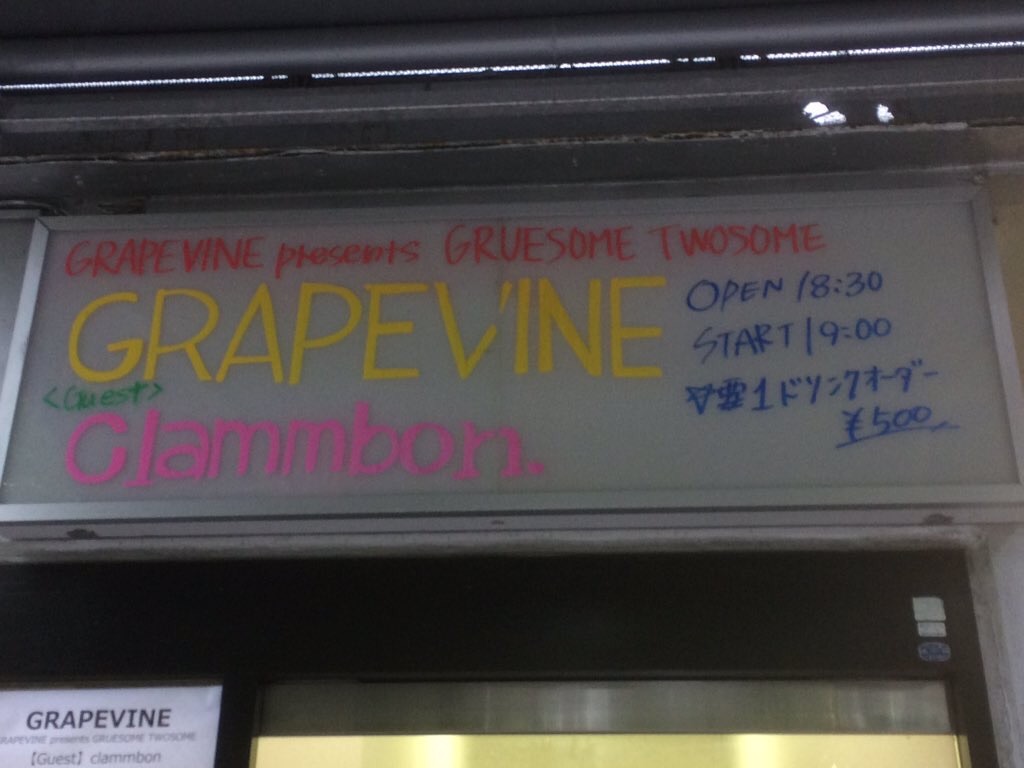 GRAPEVINE presents GRUESOME TWOSOME
GRAPEVINE
<Guest>
Clammbon.
OPEN/18:30
START/19:00
1ドリンクオーダー
¥500
GRAPEVINE
GRAPEVINE presents GRUESOME TWOSOME
【Guest】clammbon